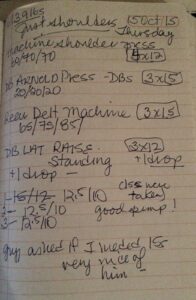 139lbs
just shoulders 15Oct15
Thursday
machine shoulder press
60/70/70 4x12
DB ARNOLD PRESS - DBs 3x15
20/20/20
Rear Delt Machine 3x15
65/75/85
DB LAT RAISE 3x12
Standing +1drop
+1drop
1- 15/12 12.5/10 (15s were
2- 12.5/10 taken)
3- 12.5/10 good pump!
guy asked if I needed 15s
very nice of
him